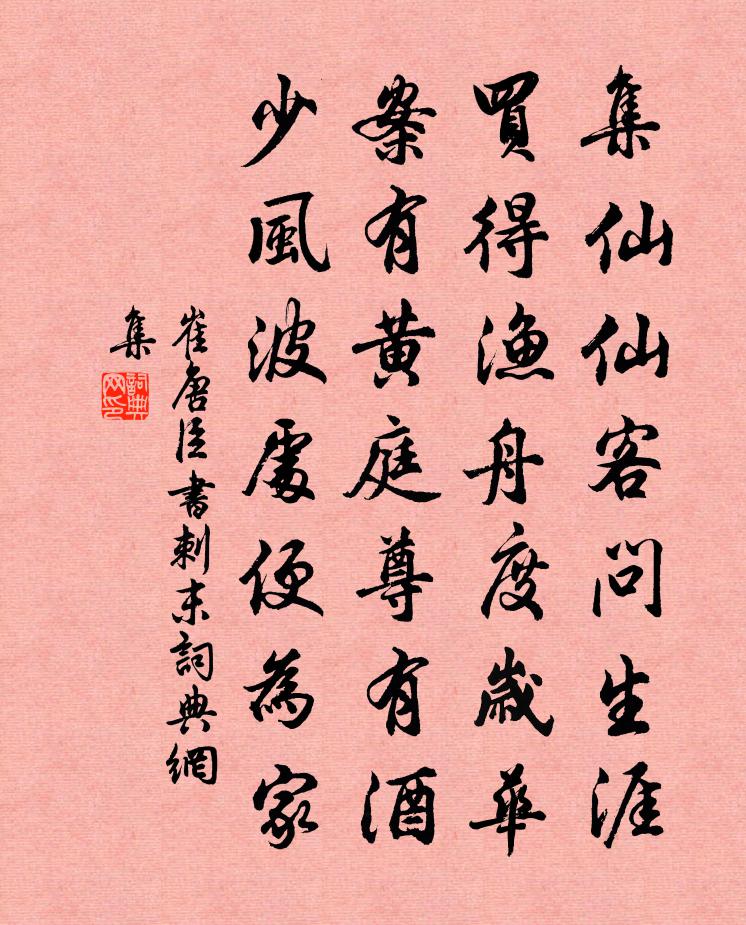 集仙仙客問生涯
買得漁舟度歲華
案有黄庭尊有酒
少風波處便為家
崔唐臣書刺末詞典網
集
詞典網印